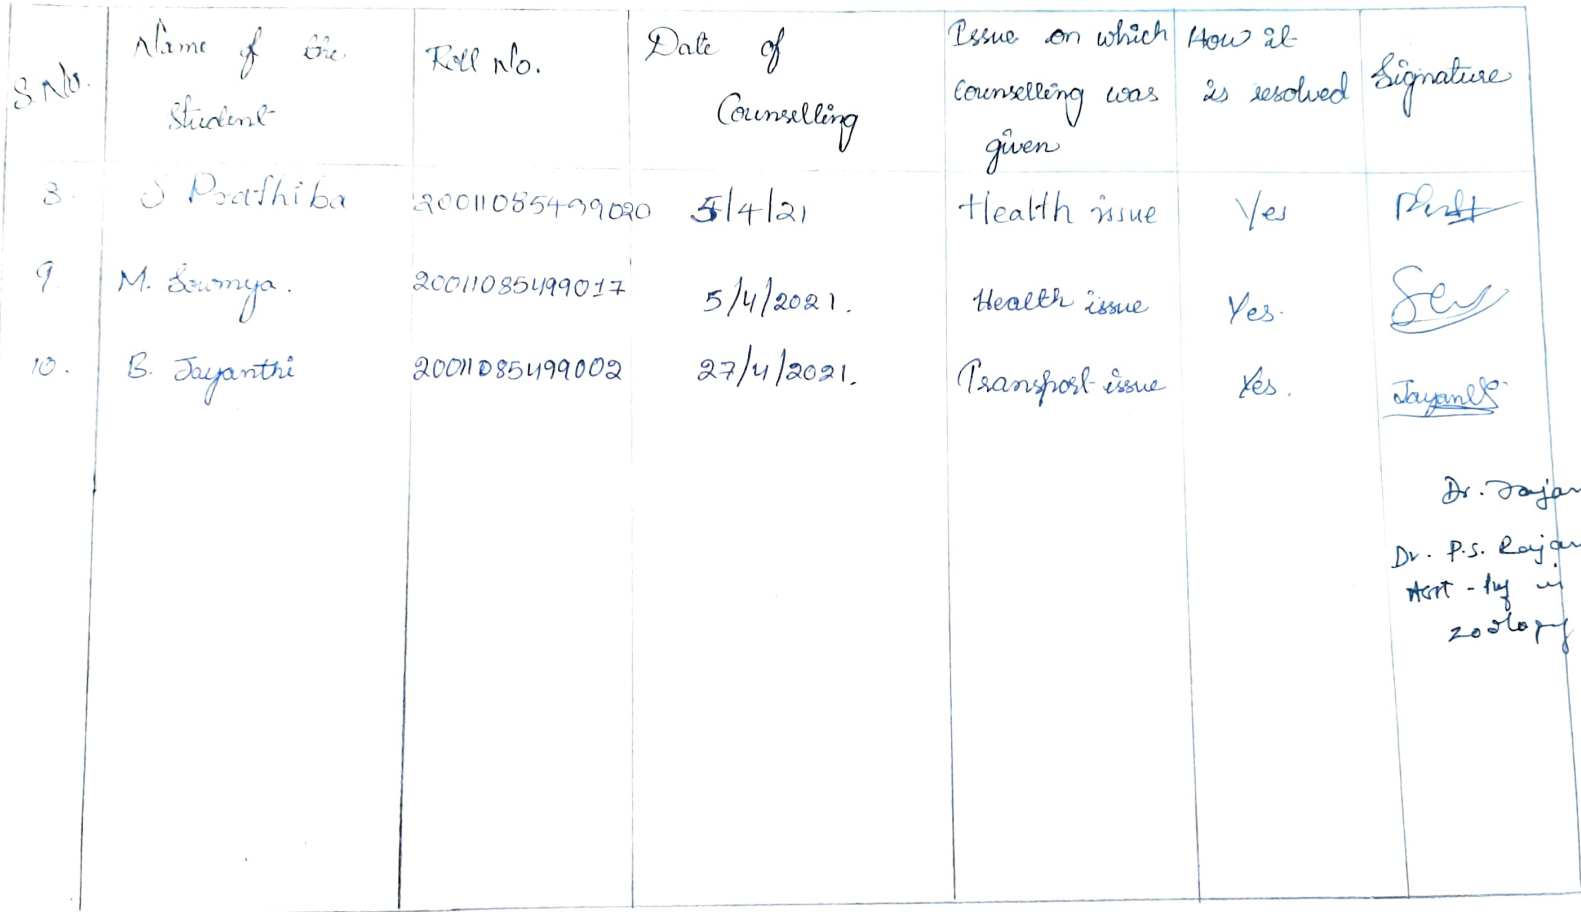 S.No.
Name of the Student
Roll No.
Date of Counselling
Issue on which counselling was given
How it is resolved
Signature
8. J Prathiba 20011085499020 5/4/21 Health issue Yes
9. M. Soumya. 20011085499017 5/4/2021. Health issue Yes.
10. B. Jayanthi 20011085499002 27/4/2021. Transport issue Yes. Jayanthi
Dr. Rajan
Dr. P.S. Rajan
Asst - Prof in
zoology